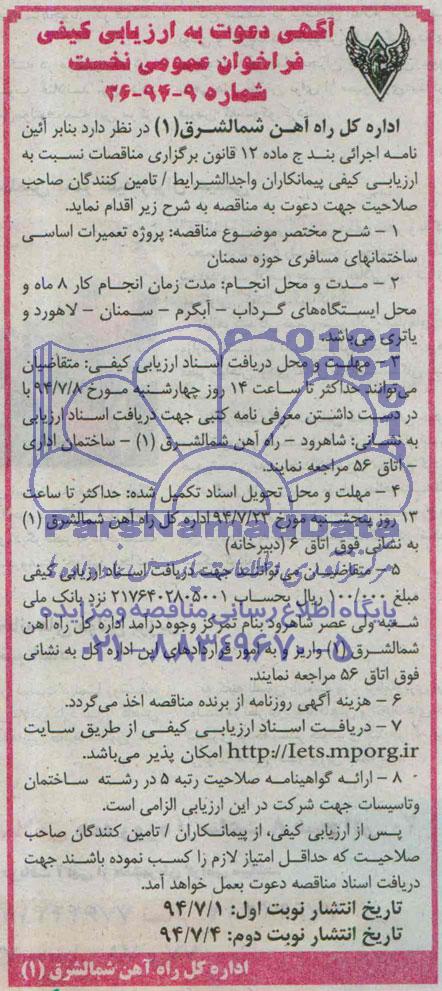 آگهی دعوت به ارزیابی کیفی
فراخوان عمومی نخست
شماره ۹-۹۴-۳۶
اداره کل راه آهن شمالشرق(۱) در نظر دارد بنابر آئین
نامه اجرائی بند ج ماده ۱۲ قانون برگزاری مناقصات نسبت به
ارزیابی کیفی پیمانکاران واجدالشرایط / تامین کنندگان صاحب
صلاحیت جهت دعوت به مناقصه به شرح زیر اقدام نماید.
۱ – شرح مختصر موضوع مناقصه: پروژه تعمیرات اساسی
ساختمانهای مسافری حوزه سمنان
۲ – مدت و محل انجام: مدت زمان انجام کار ۸ ماه و
محل ایستگاه‌های گرداب – آبگرم – سمنان – لاهورد و
یاتری می‌باشد.
۳ – مهلت و محل دریافت اسناد ارزیابی کیفی: متقاضیان
می‌توانند حداکثر تا ساعت ۱۴ روز چهارشنبه مورخ ۹۴/۷/۸ با
در دست داشتن معرفی نامه کتبی جهت دریافت اسناد ارزیابی
به نشانی: شاهرود – راه آهن شمالشرق (۱) – ساختمان اداری
– اتاق ۵۶ مراجعه نمایند.
۴ – مهلت و محل تحویل اسناد تکمیل شده: حداکثر تا ساعت
۱۳ روز پنجشنبه مورخ ۹۴/۷/۲۳ اداره کل راه آهن شمالشرق (۱)
به نشانی فوق اتاق ۶ (دبیرخانه)
ParsNamadData
۵ – متقاضیان می‌توانند جهت دریافت اسناد ارزیابی کیفی
مبلغ ۱۰۰/۰۰۰ ریال بحساب ۲۱۷۶۴۰۲۸۰۵۰۰۱ نزد بانک ملی
پایگاه اطلاع رسانی مناقصه و مزایده
شعبه ولی عصر شاهرود بنام تمرکز وجوه درآمد اداره کل راه آهن
۰۲۱-۸۸۳۴۹۶۷۰-۵
شمالشرق (۱) واریز و به امور قراردادهای این اداره کل به نشانی
فوق اتاق ۵۶ مراجعه نمایند.
۶ – هزینه آگهی روزنامه از برنده مناقصه اخذ می‌گردد.
۷ – دریافت اسناد ارزیابی کیفی از طریق سایت
http://Iets.mporg.ir امکان پذیر می‌باشد.
۸ – ارائه گواهینامه صلاحیت رتبه ۵ در رشته ساختمان
وتاسیسات جهت شرکت در این ارزیابی الزامی است.
پس از ارزیابی کیفی، از پیمانکاران / تامین کنندگان صاحب
صلاحیت که حداقل امتیاز لازم را کسب نموده باشند جهت
دریافت اسناد مناقصه دعوت بعمل خواهد آمد.
تاریخ انتشار نوبت اول: ۹۴/۷/۱
تاریخ انتشار نوبت دوم: ۹۴/۷/۴
اداره کل راه آهن شمالشرق (۱)